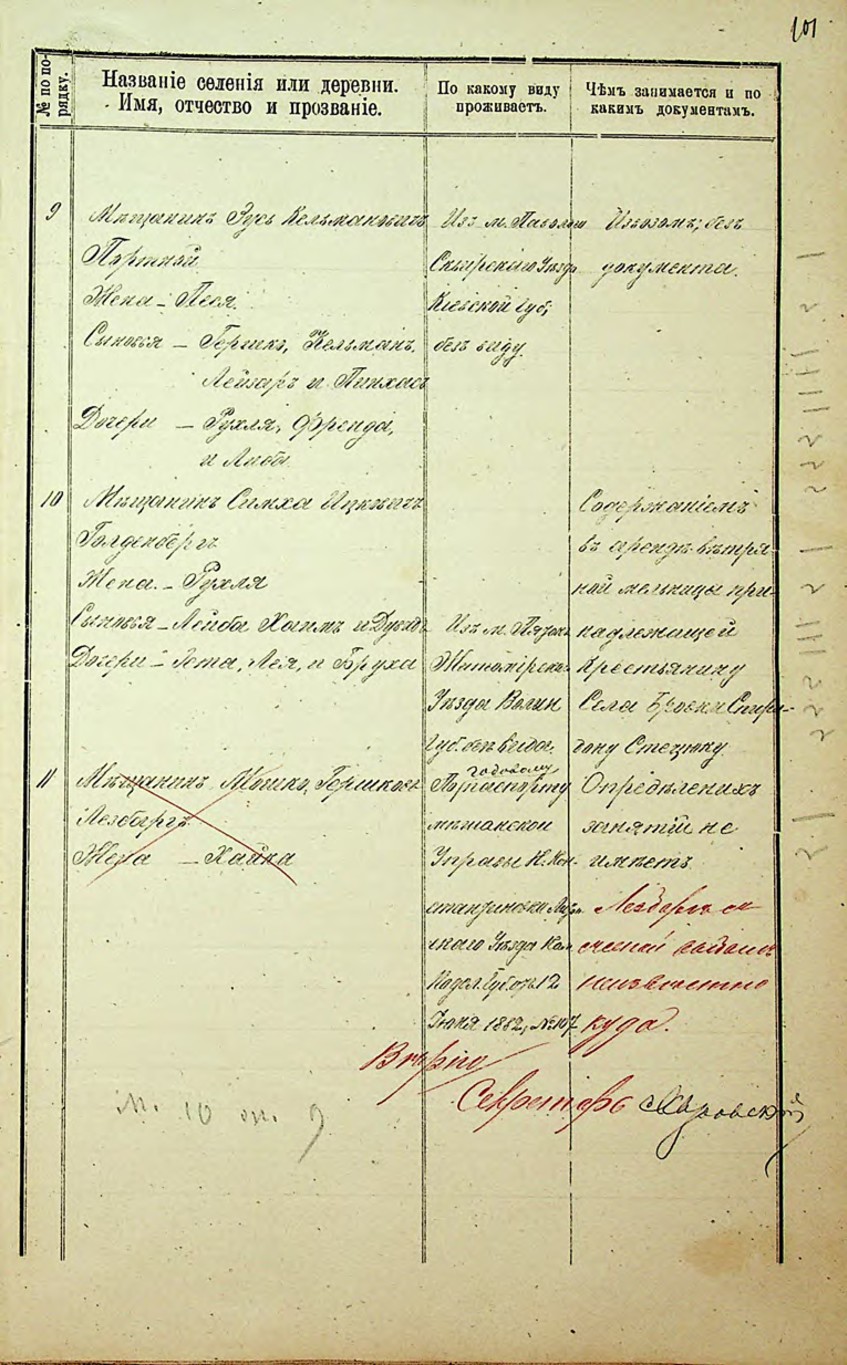 101
№ по по-
рядку.
Названіе селенія или деревни.
Имя, отчество и прозваніе.
По какому виду
проживаетъ.
Чѣмъ занимается и по
какимъ документамъ.
9
Мѣщанинъ Зусь Кельмановичъ
Портной
Жена – Песя.
Сыновья – Гершко, Кельманъ,
Лейзаръ и Пинхасъ
Дочери – Рухля, Френда,
и Люба
Изъ м. Паволочи
Сквирскаго Уѣзда
Кіевской Губ,
безъ виду.
Извозомъ; безъ
документа.
10
Мѣщанинъ Симха Ицковичъ
Голденбергъ
Жена – Рухля
Сыновья – Лейба Хаимъ и
Дочери – Гета, Лея, и Бруха
Изъ м.
Житомірска
Уѣзда Волин
Губ. безъ вида.
Содержаніемъ
въ арендѣ вѣтря-
ной мельницы при-
надлежащей
Крестьянину
Села Спири-
дону Стецюку
11
Мѣщанинъ Мошко, Гершков
Лезбергъ
Жена – Хайка
годовому
По паспорту
мѣщанской
Управы Н. Кон-
стантиновки
скаго Уѣзда Кам
Подол. Губ. отъ 12
Іюня 1882, № 107
Опредѣленихъ
занятій не
имѣетъ.
Лезбергъ съ
семьей
неизвѣстно
куда.
Вѣрно
Секретарь
10 9